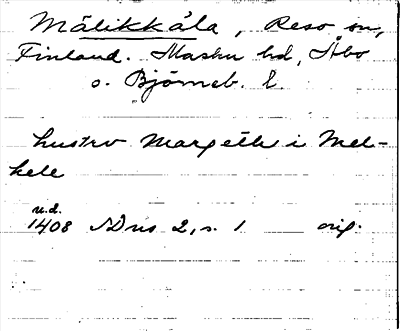 Mälikkälä, Reso sn,
Finland. Masku hd, Åbo
o. Björneb. l.
hustro Margetle i Mel-
kele
u.d.
1408 Dns 2, s. 1 orig.